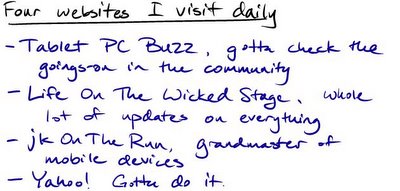 Four websites I visit daily
- Tablet PC Buzz, gotta check the
goings-on in the community
- Life On The Wicked Stage. whole
lot of updates on everything
- jk On The Run, grandmaster of
mobile devices
- Yahoo! Gotta do it.